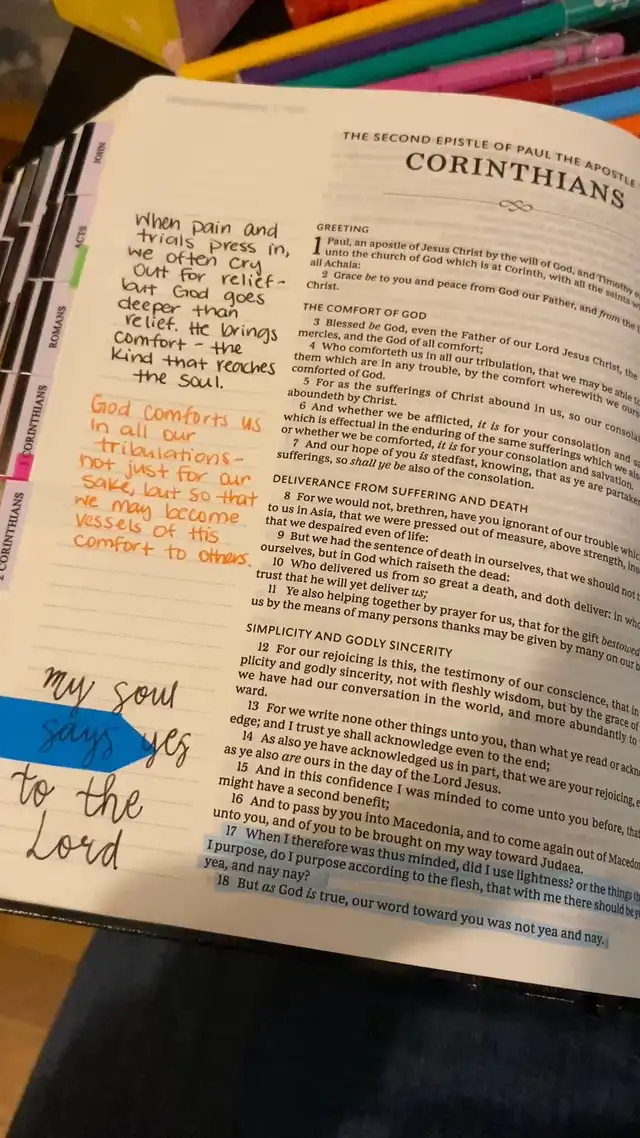 JOHN
ACTS
ROMANS
1 CORINTHIANS
2 CORINTHIANS
When pain and
trials press in,
we often cry
out for relief-
but God goes
deeper than
relief. He brings
comfort - the
kind that reaches
the soul.
God comforts us
in all our
tribulations-
not just for our
sake, but so that
we may become
vessels of His
comfort to others.
my soul
says yes
to the
Lord
THE SECOND EPISTLE OF PAUL THE APOSTLE
CORINTHIANS
GREETING
1 Paul, an apostle of Jesus Christ by the will of God, and Timothy
unto the church of God which is at Corinth, with all the saints
all Achaia:
2 Grace be to you and peace from God our Father, and from the
Christ.
THE COMFORT OF GOD
3 Blessed be God, even the Father of our Lord Jesus Christ, the
mercies, and the God of all comfort;
4 Who comforteth us in all our tribulation, that we may be able to
them which are in any trouble, by the comfort wherewith we
comforted of God.
5 For as the sufferings of Christ abound in us, so our
aboundeth by Christ.
6 And whether we be afflicted, it is for your consolation and
which is effectual in the enduring of the same sufferings which we
or whether we be comforted, it is for your consolation and salvation.
7 And our hope of you is stedfast, knowing, that as ye are
sufferings, so shall ye be also of the consolation.
DELIVERANCE FROM SUFFERING AND DEATH
8 For we would not, brethren, have you ignorant of our trouble
to us in Asia, that we were pressed out of measure, above strength,
that we despaired even of life:
9 But we had the sentence of death in ourselves, that we should not
ourselves, but in God which raiseth the dead:
10 Who delivered us from so great a death, and doth deliver: in
trust that he will yet deliver us;
11 Ye also helping together by prayer for us, that for the gift bestowed
us by the means of many persons thanks may be given by many on our
SIMPLICITY AND GODLY SINCERITY
12 For our rejoicing is this, the testimony of our conscience, that in
plicity and godly sincerity, not with fleshly wisdom, but by the grace of
we have had our conversation in the world, and more abundantly to
ward.
13 For we write none other things unto you, than what ye read or
edge; and I trust ye shall acknowledge even to the end;
14 As also ye have acknowledged us in part, that we are your rejoicing,
as ye also are ours in the day of the Lord Jesus.
15 And in this confidence I was minded to come unto you before,
might have a second benefit;
16 And to pass by you into Macedonia, and to come again out of
unto you, and of you to be brought on my way toward Judaea.
17 When I therefore was thus minded, did I use lightness? or the things
I purpose, do I purpose according to the flesh, that with me there should be
yea, and nay nay?
18 But as God is true, our word toward you was not yea and nay.